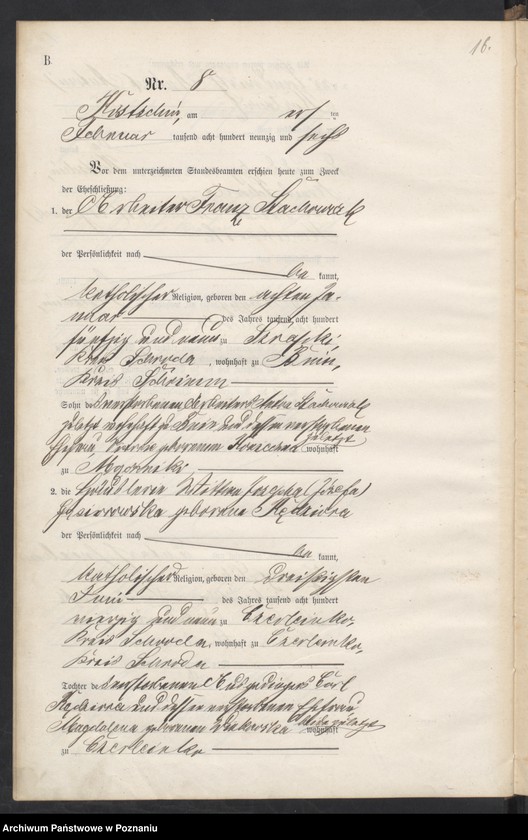 18.
B
Nr. 8
am ersten
Februar tausend acht hundert neunzig und sechs
Vor dem unterzeichneten Standesbeamten erschien heute zum Zweck
der Eheschließung:
1. der Arbeiter Franz Stachowiak
der Persönlichkeit nach
be kannt,
katholischer Religion, geboren den achten Ja-
nuar des Jahres tausend acht hundert
fünfzig und neun zu
Kreis Schroda, wohnhaft zu Bnin,
Kreis Schrimm
Sohn des verstorbenen Arbeiters Stachowiak
zuletzt wohnhaft zu und dessen verstorbenen
Ehefrau geborenen zuletzt wohnhaft
zu
2. die Wittwe Josepha (Józefa)
geborene
der Persönlichkeit nach
be kannt,
katholischer Religion, geboren den dreißigsten
Juni des Jahres tausend acht hundert
vierzig und neun zu Czerleinko
Kreis Schroda, wohnhaft zu Czerleinko,
Kreis Schroda
Tochter des verstorbenen Ausgedingers
und dessen verstorbenen Ehefrau
Magdalena geborenen beide zuletzt wohnhaft
zu Czerleinko
Archiwum Państwowe w Poznaniu